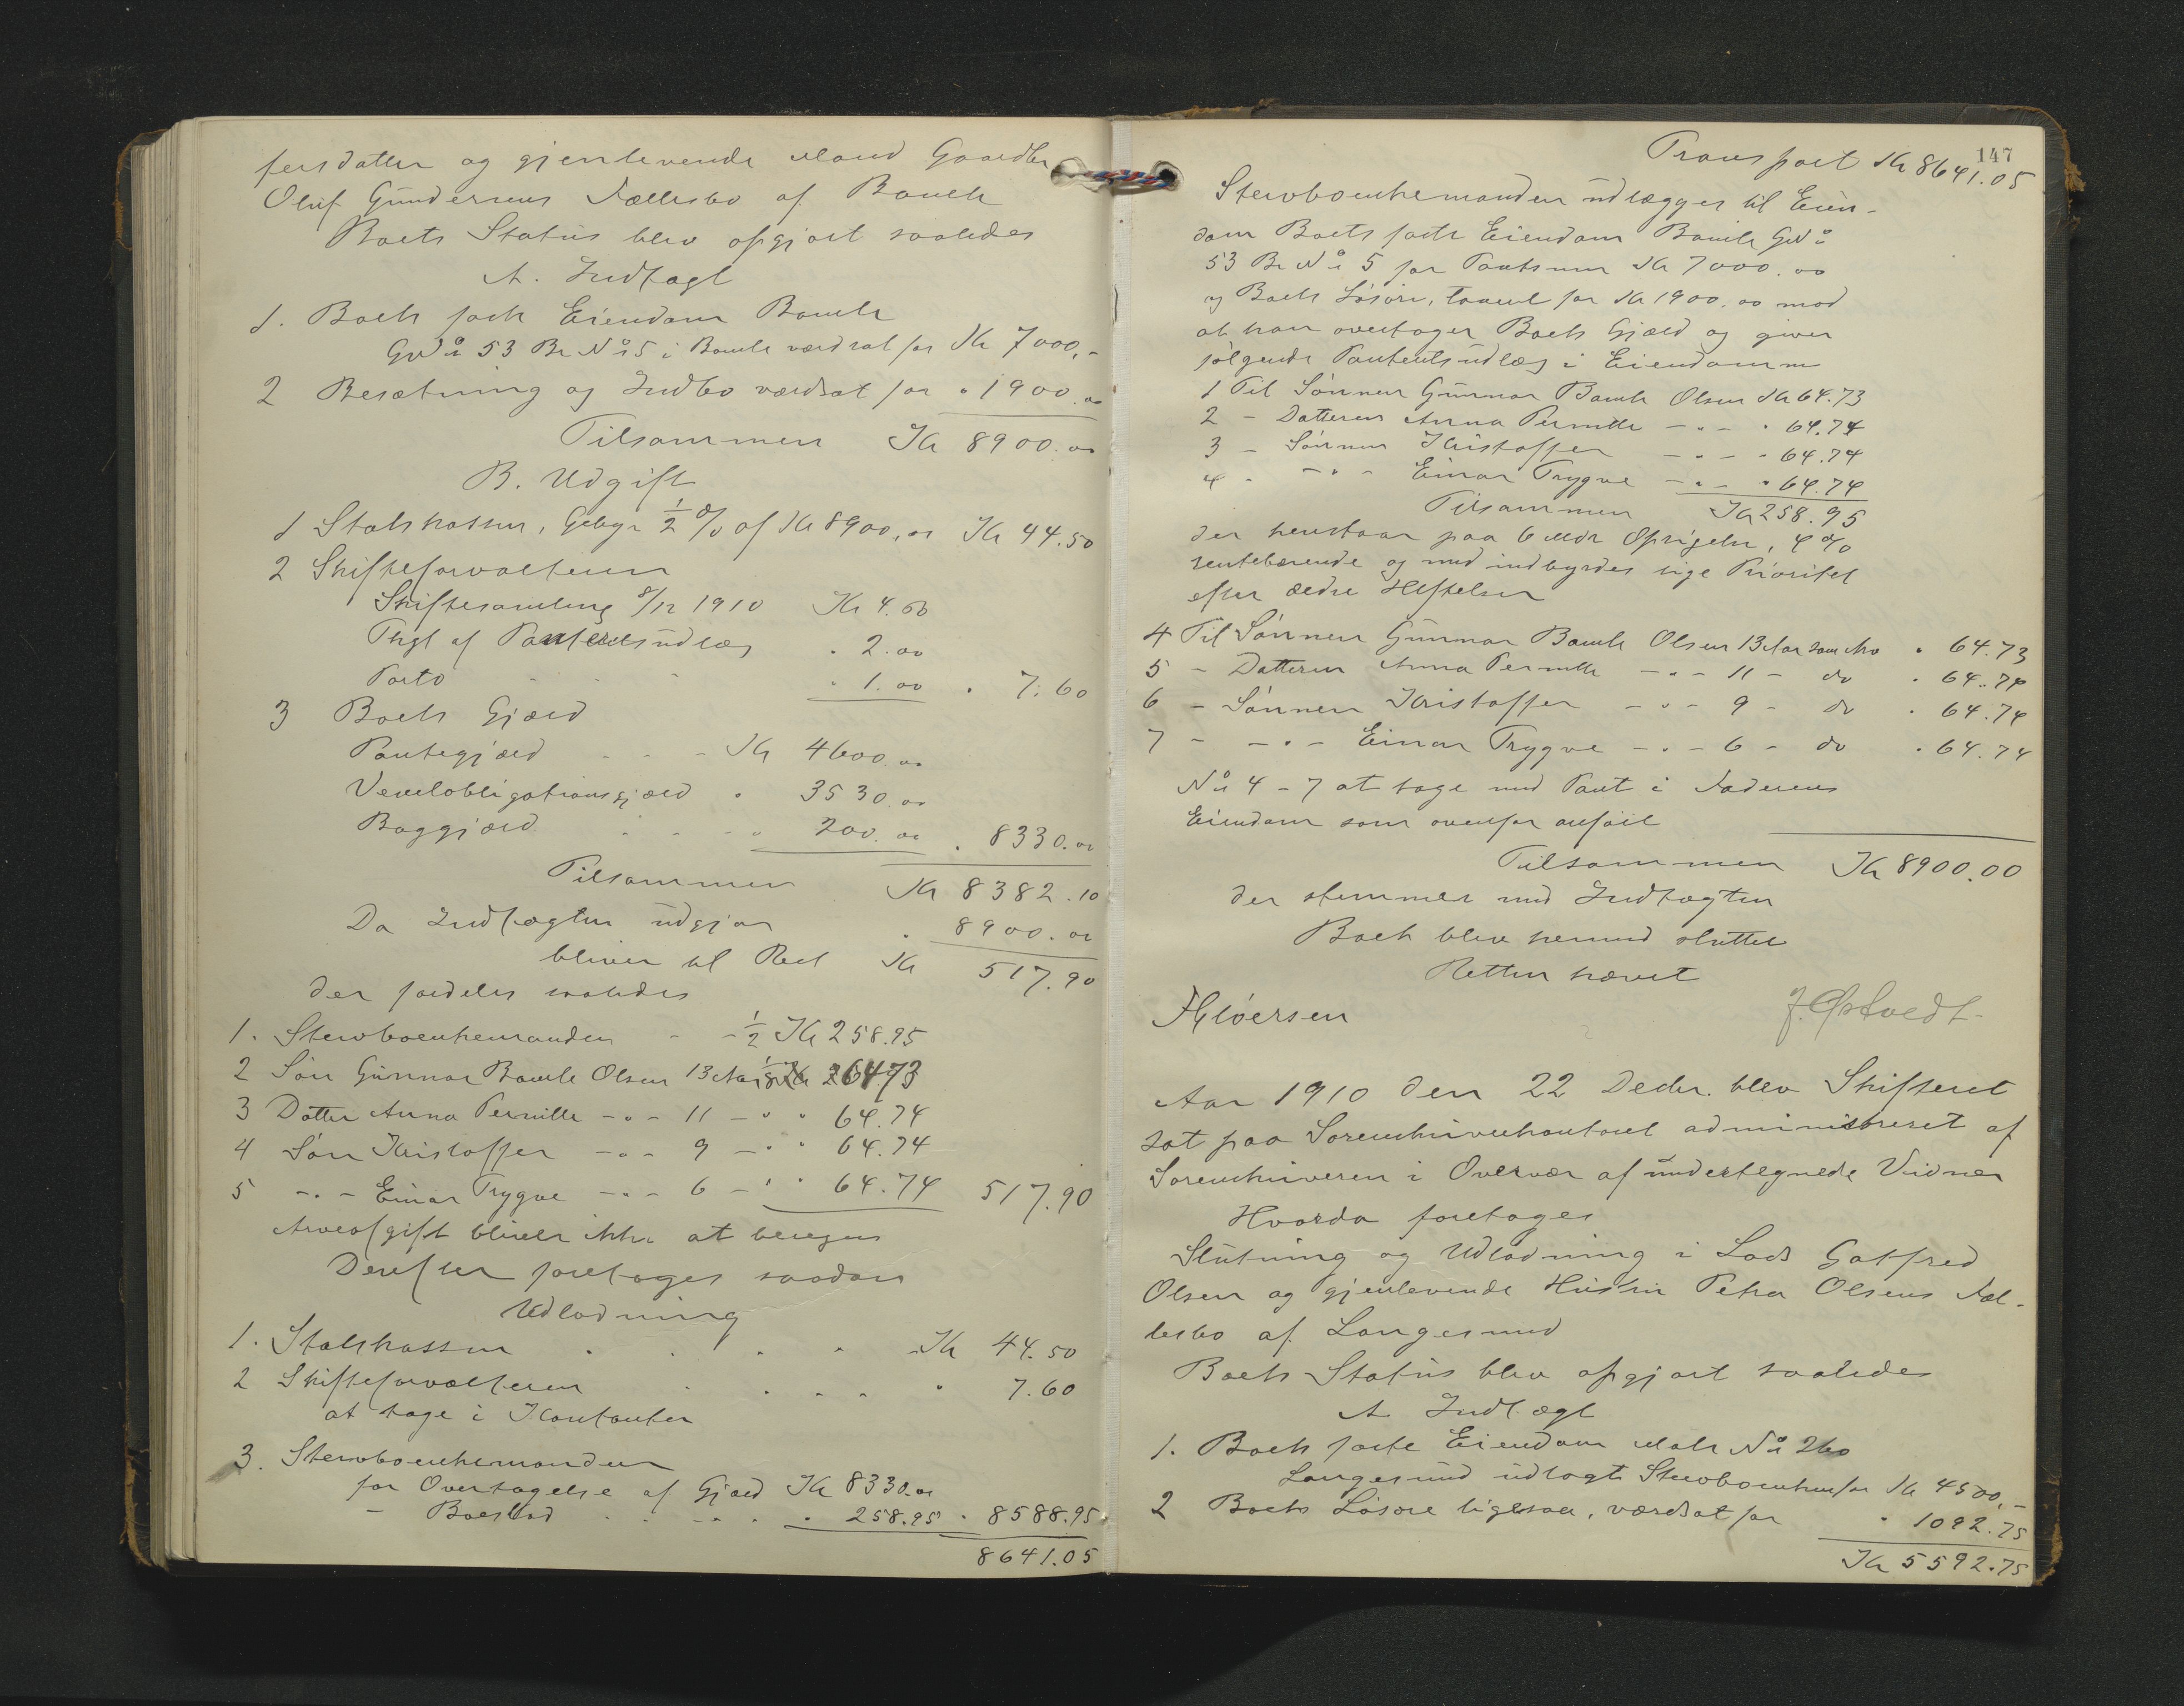 fersdatter og gjenlevende Mand Gaardbr
Oluf Gundersens Fællesbo af Bamle
Boets Status blev opgjort saaledes
A. Indtægt
1. Boets faste Eiendom Bamle
GNo 53 Br No 5 i Bamle værdsat for Kr 7000,-
2 Besætning og Indbo værdsat for " 1900.00
Tilsammen Kr 8900.00
B. Udgift
1 Statskassen, Gebyr 1/2 % af Kr 8900,00 Kr 44.50
2 Skifteforvalteren
Skiftesamling 8/12 1910 Kr 4.60
Thgl af Panteudlæg " 2.00
Porto " 1.00 " 7.60
3 Boets Gjæld
Pantegjæld - - - Kr 4600.00
Vexelobligationsgjæld " 3530.00
Boggjæld - - - " 200.00 " 8330.00
Tilsammen Kr 8382.10
Da Indtægten udgjør " 8900.00
bliver til Rest Kr 517.90
der fordeles saaledes
1. Stervboenkemanden - - 1/2 Kr 258.95
2 Søn Gunnar Bamle Olsen 13 Aar 1/8 Kr 64.73
3 Datter Anna Pernille -"- 11 - " " 64.74
4 Søn Kristoffer -"- 9 - " " 64.74
5 -"- Einar Trygve -"- 6 - " " 64.74 517.90
Arveafgift bliver ikke at beregne
Derefter foretages saadan
Udlodning
1. Statskassen . . . . Kr 44.50
2 Skifteforvalteren . . . . " 7.60
at tage i Kontanter
3. Stervboenkemanden
for Overtagelse af Gjæld Kr 8330.00
- Boeslod . . . . " 258.95 " 8588.95
8641.05
147
Transport Kr 8641.05
Stervboenkemanden udlægges til Eien-
dom Boets faste Eiendom Bamle GNo
53 Br No 5 for Pantsum Kr 7000.00
og Boets Løsøre, taxeret for Kr 1900.00 mod
at han overtager Boets Gjæld og giver
følgende Panteudlæg i Eiendommen
1 Til Sønnen Gunnar Bamle Olsen Kr 64.73
2 - Datteren Anna Pernille -"- " 64.74
3 - Sønnen Kristoffer -"- " 64.74
4 - -"- Einar Trygve -"- " 64.74
Tilsammen Kr 258.95
der henstaar paa 6 Mdr Opsigelse, 4 %
rentebærende og med indbyrdes lige Prioritet
efter ældre Heftelser
4 Til Sønnen Gunnar Bamle Olsen 13 Aar som Arv " 64.73
5 - Datteren Anna Pernille -"- 11 - do " 64.74
6 - Sønnen Kristoffer -"- 9 - do " 64.74
7 - -"- Einar Trygve -"- 6 - do " 64.74
No 4-7 at tage med Pant i Faderens
Eiendom som ovenfor anført
Tilsammen Kr 8900.00
der stemmer med Indtægten
Boet blev hermed sluttet
Retten hævet
J. Østvedt-
Aar 1910 den 22 Decbr. blev Skifteret
sat paa Sorenskriverkontoret administreret af
Sorenskriveren i Overvær af undertegnede Vidner
Hvorda foretages
Slutning og Udlodning i Lods Gotfred
Olsen og gjenlevende Hustru Petra Olsens Fæl-
lesbo af Langesund
Boets Status blev opgjort saaledes
A Indtægt
1. Boets faste Eiendom Matr No 260
Langesund udlagt Stervboenken for Kr 4500,-
2 Boets Løsøre ligesaa, værdsat for " 1092.75
Kr 5592.75